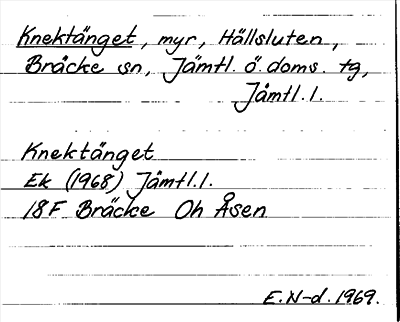 Knektänget, myr, Hällsluten,
Bräcke sn, Jämtl. ö. doms. tg,
Jämtl. l.
Knektänget
Ek (1968) Jämtl. l.
18F Bräcke Oh Åsen
E. N-d. 1969.